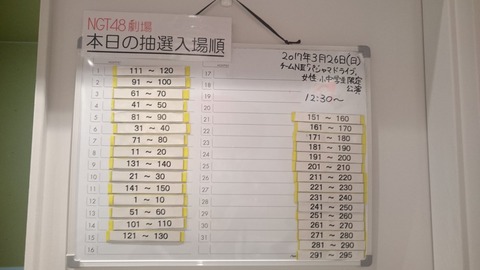 NGT48劇場
本日の抽選入場順
2017年3月26日(日)
チームNⅢ「パジャマドライブ」
女性、小中学生限定
公演
12:30～
1 111 ～ 120
2 91 ～ 100
3 61 ～ 70
4 41 ～ 50
5 81 ～ 90
6 31 ～ 40
7 71 ～ 80
8 11 ～ 20
9 131 ～ 140
10 21 ～ 30
11 141 ～ 150
12 1 ～ 10
13 51 ～ 60
14 101 ～ 110
15 121 ～ 130
16
17
18
19
20
21 151 ～ 160
22 161 ～ 170
23 171 ～ 180
24 181 ～ 190
191 ～ 200
201 ～ 210
211 ～ 220
221 ～ 230
231 ～ 240
241 ～ 250
251 ～ 260
261 ～ 270
271 ～ 280
281 ～ 290
291 ～ 295